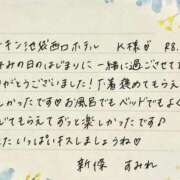 キン池袋西口ホテル K様♡ R8.
みの日のはじまりに一緒に過ごせて
がとうございました！下着褒めてもらえて
しかったです♡お風呂でもベッドでもよく
てもらえてずっと楽しかったです♪
たいっぱいキスしましょうね♡
新保 すみれ